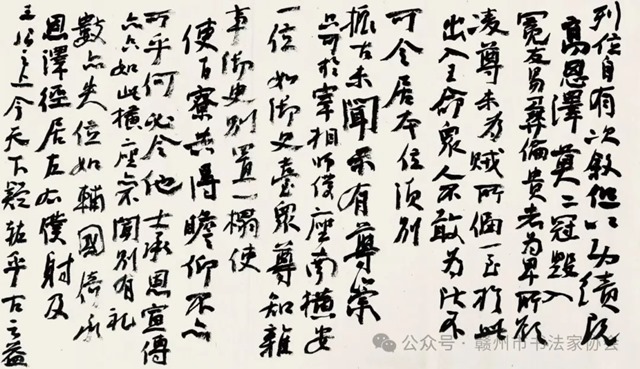 列位自有次叙但以功績既
高恩澤莫二
易彝倫貴者為卑所
凌尊者為賊所偪一至於此
出入王命眾人不敢為比不
可令居本位須別
振古未聞 示有尊崇
只可於宰相師保座南橫安
一位如御史臺眾尊知雜
事御史別置一榻使
使百寮共得瞻仰不亦
可乎何必令他 承恩宣傳
亦如此橫座亦不聞別有禮
數亦失位如輔國倚承
恩澤徑居左右僕射及
王公之上令天下疑怪乎古之益
公众号·赣州市书法家协会